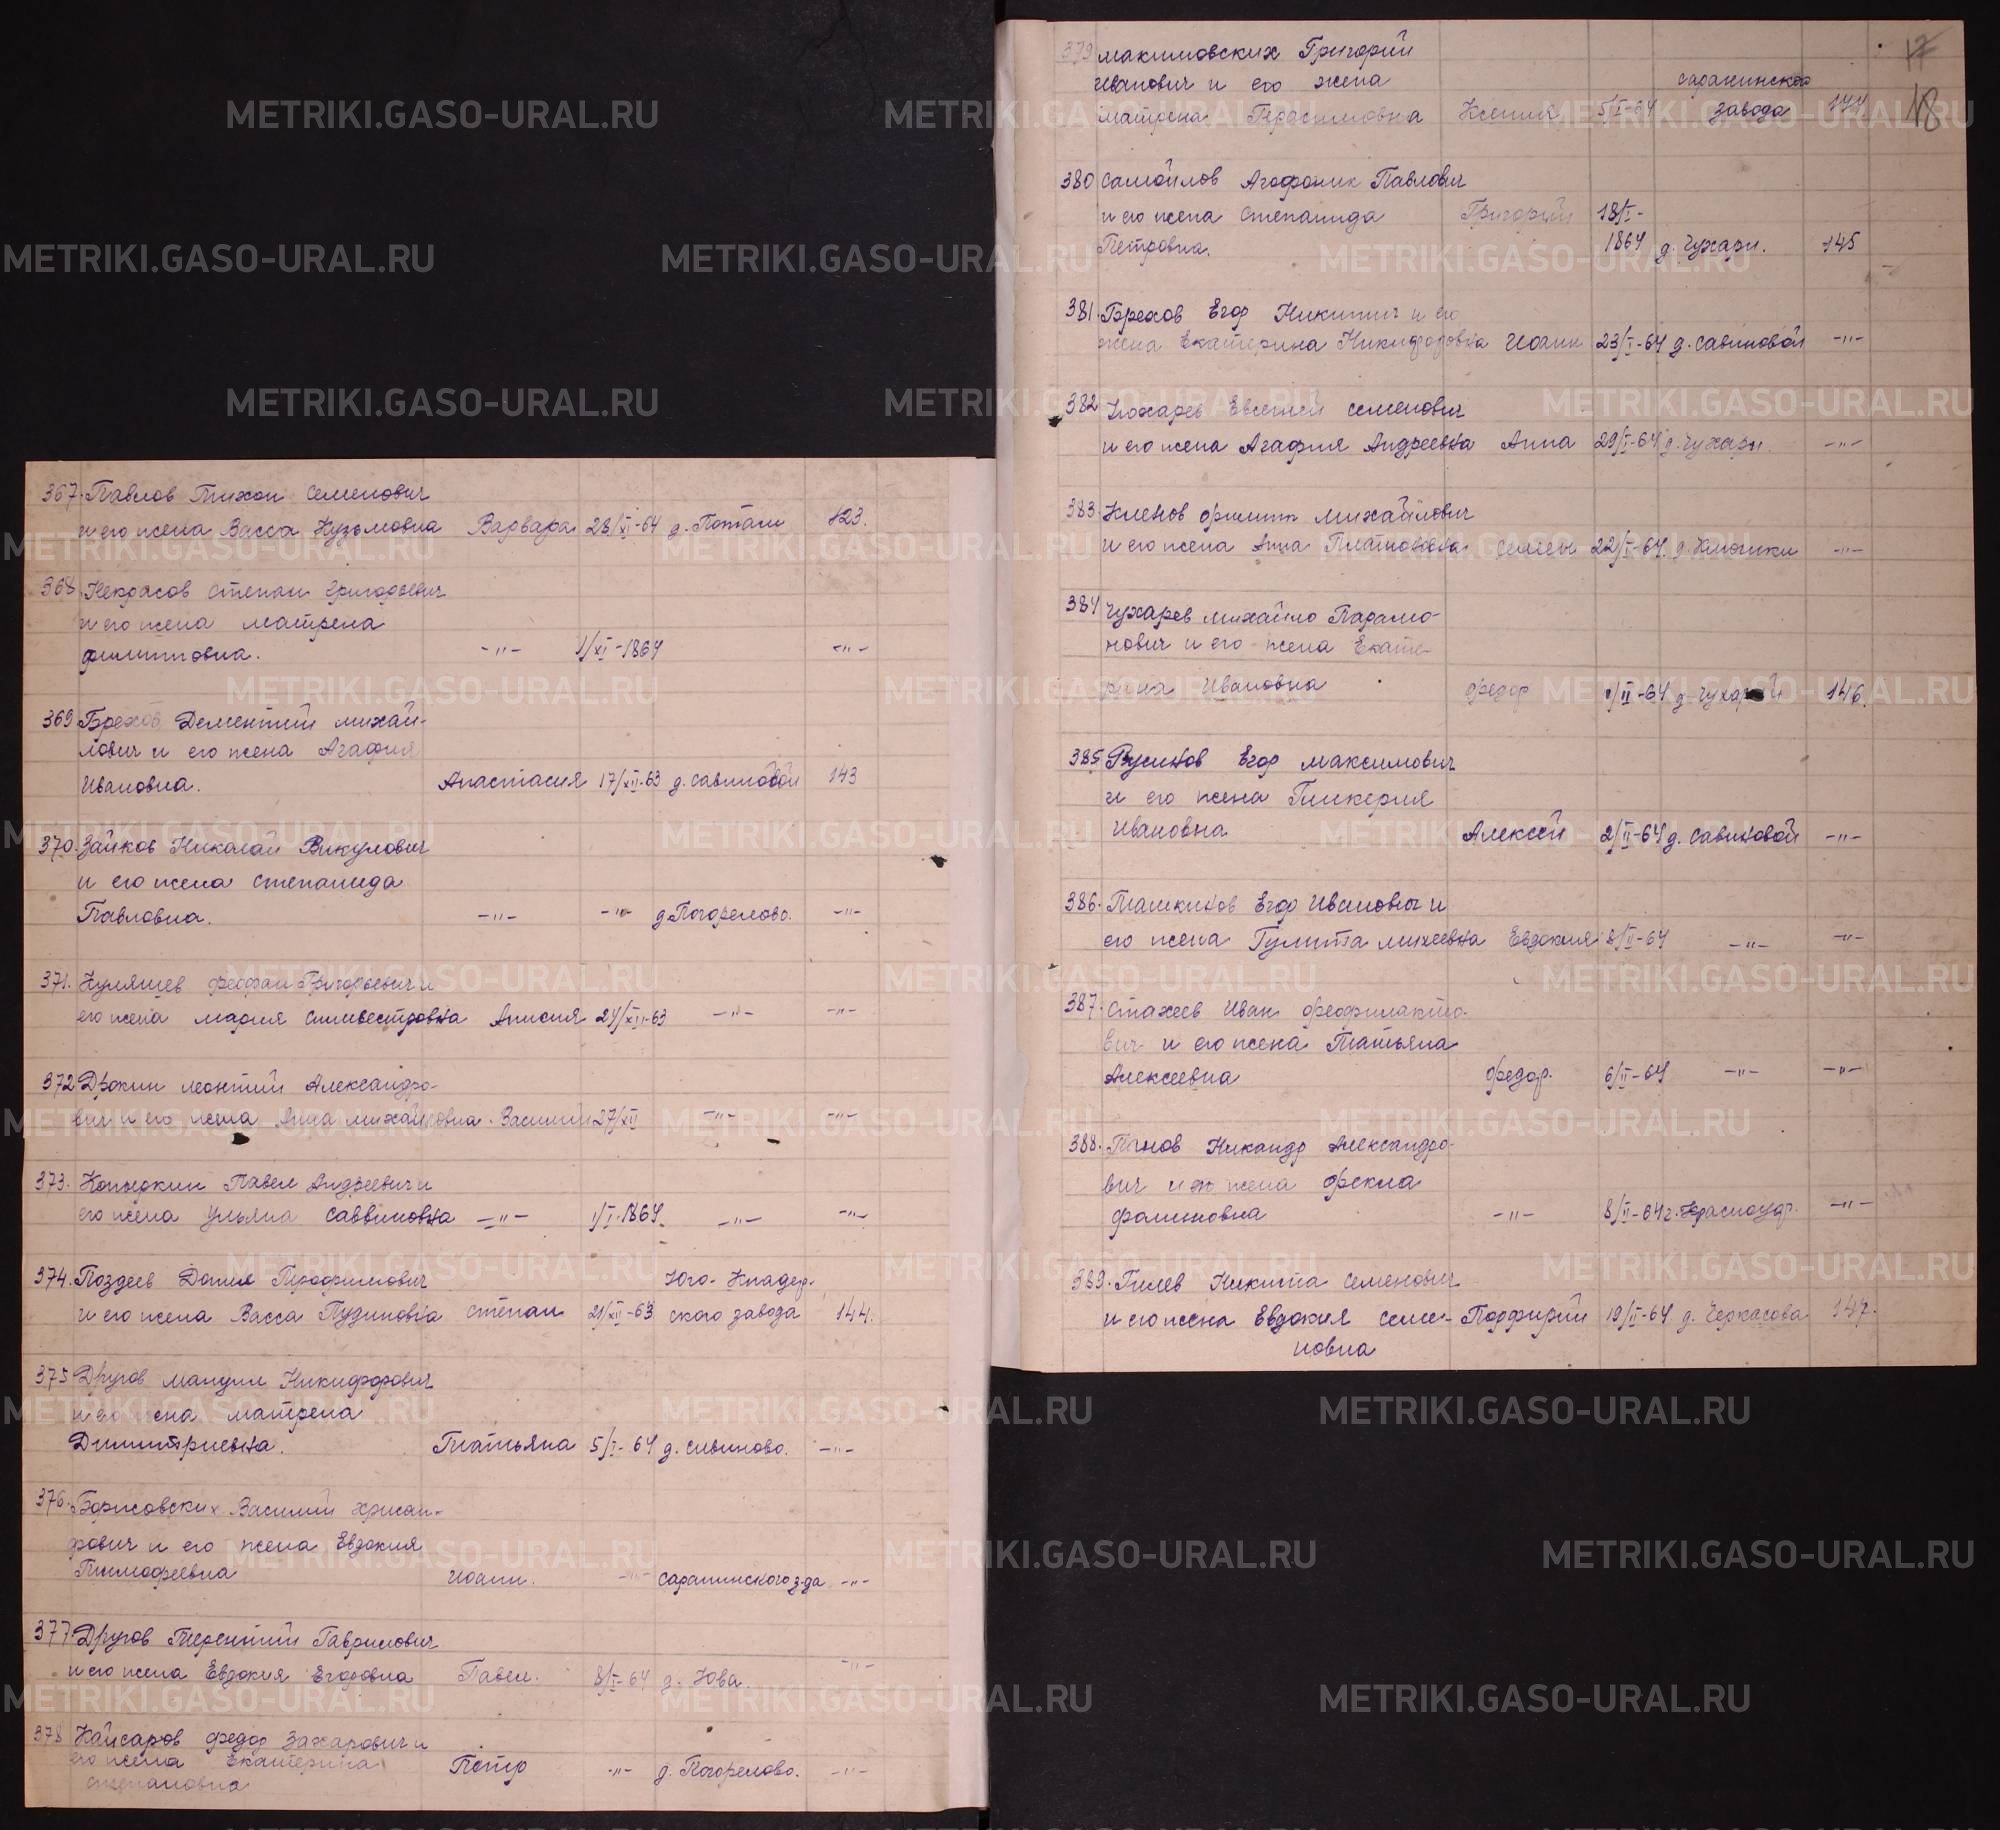 367. Павлов Тихон Семенович
и его жена Васса Кузьмовна Варвара 28/XI-64 д. Поташи 123.
368. Некрасов Степан Григорьевич
и его жена Матрена
Филипповна. -"- 1/XI-1864 -"-
369 Брехов Дементий Михай-
лович и его жена Агафия
Ивановна. Анастасия 17/XII-63 д. Савиновой 143
370. Зайков Николай Викулович
и его жена Степанида
Павловна. -"- -"- д. Погорелово. -"-
371. Куляшев Феофан Григорьевич и
его жена Мария Сильвестровна Анисия 24/XII-63 -"- -"-
372 Дрокин Леонтий Александро-
вич и его жена Анна Михайловна. Василий 27/XII -"- -"-
373. Копыркин Павел Андреевич и
его жена Ульяна Саввиновна -"- 1/I-1864. -"- -"-
374. Поздеев Данил Трофимович Юго-Кнауф-
и его жена Васса Пудиновна Степан 21/XII-63 ского завода 144.
375 Другов Мануил Никифорович
и его жена Матрена
Димитриевна. Татьяна 5/I-64 д. Савиново. -"-
376. Борисовских Василий Хрисан-
фович и его жена Евдокия
Тимофеевна Иоанн. -"- Саранинского з-да -"-
377 Другов Терентий Гаврилович
и его жена Евдокия Егоровна Павел. 8/I-64 д. Юва. -"-
378 Кайсаров Федор Захарович и
его жена Екатерина Петр -"- д. Погорелово. -"-
Степановна
17
379 Макимовских Григорий
Иванович и его жена Саранинского
Матрена Герасимовна Ксения 5/I-64 завода 144 18
380 Самойлов Агафоник Павлович
и его жена Степанида Григорий 18/I-
Петровна. 1864 д. Чухари. 145
381. Брехов Егор Никитич и его
жена Екатерина Никифоровна Иоанн 23/I-64 д. Савиновой -"-
382 Кохарев Евгений Семенович
и его жена Агафия Андреевна Анна 29/I-64 д. Чухари. -"-
383. Кленов Филипп Михайлович
и его жена Анна Платоновна Семен 22/I-64. д. Ключики -"-
384 Чухарев Михайло Парамо-
нович и его жена Екате-
рина Ивановна Федор 1/II-64 д. Чухарей 146.
385 Русинов Егор Максимович
и его жена Гликерия
Ивановна Алексей 2/II-64 д. Савиновой -"-
386. Ташкинов Егор Иванович и
его жена Гулита Михеевна Евдокия 8/II-64 -"- -"-
387. Стахеев Иван Феофилакто-
вич и его жена Татьяна
Алексеевна Федор. 6/II-64 -"- -"-
388. Панов Никандр Александро-
вич и его жена Фекла
Фоминовна -"- 8/II-64 г. Красноуф. -"-
389. Гилев Никита Семенович
и его жена Евдокия Семе- Порфирий 19/II-64. д. Черкасова 147.
новна